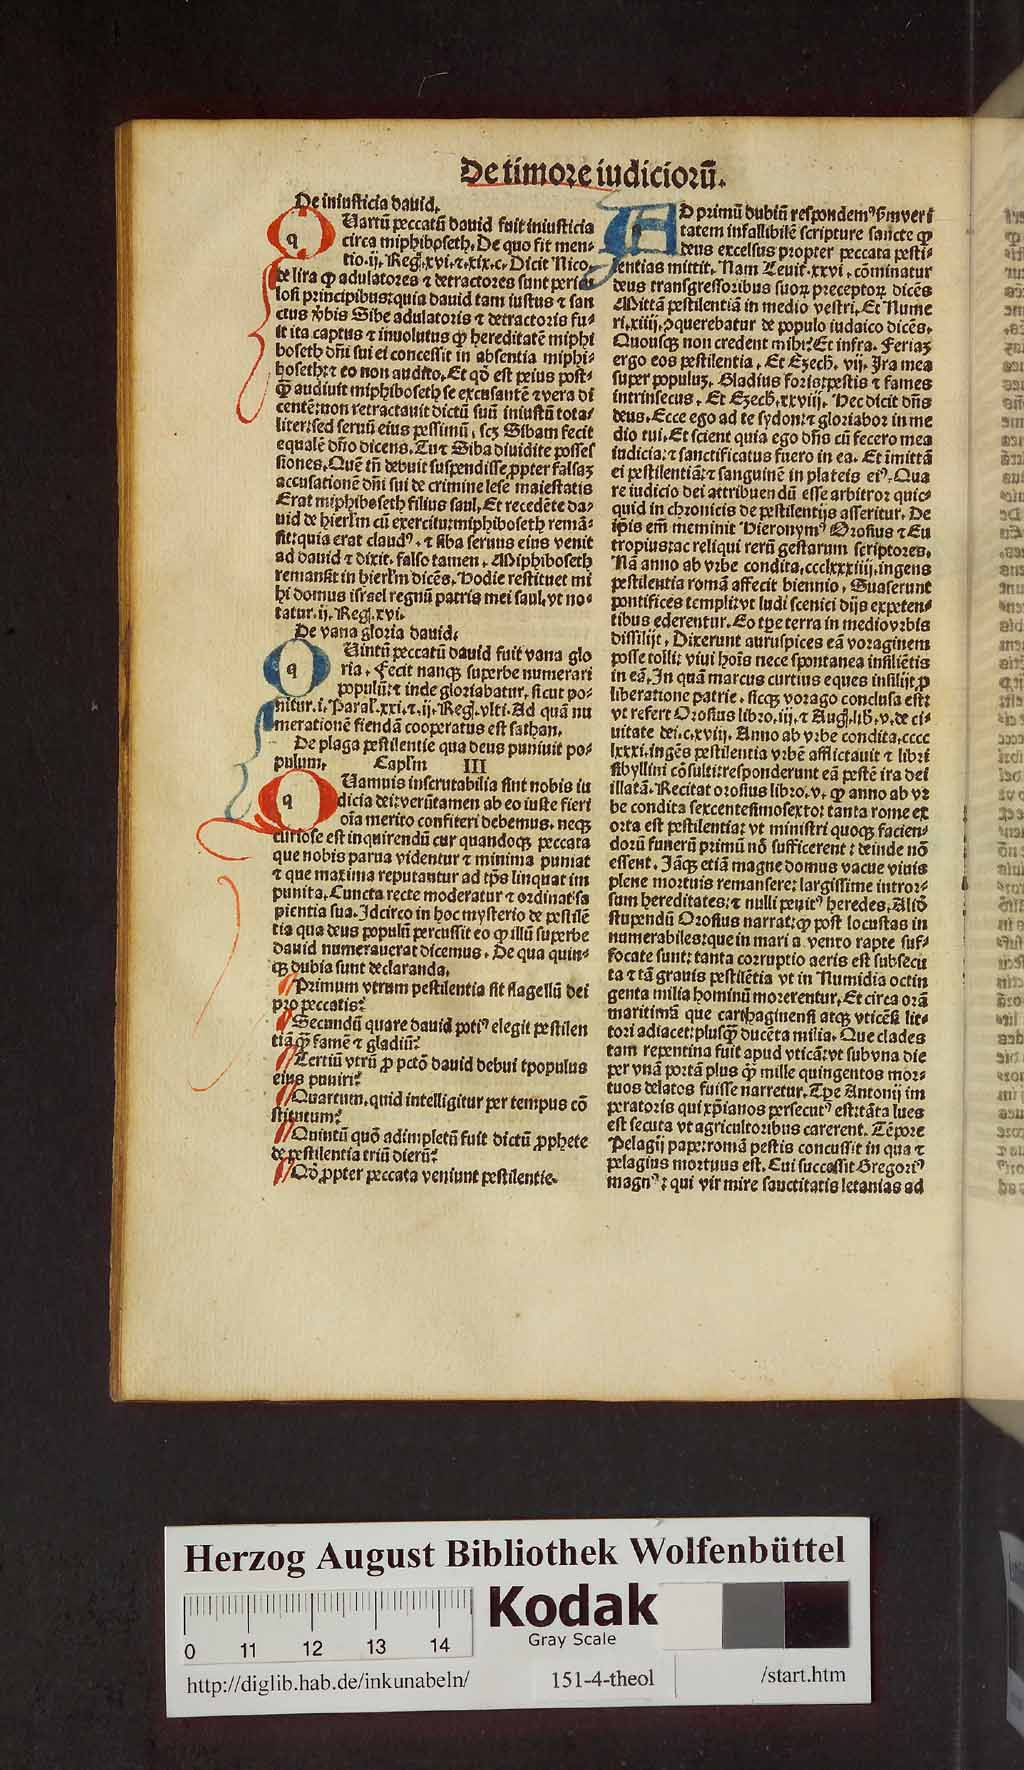 De timore iudiciorū.
De iniusticia dauid.
Uartū peccatū dauid fuit iniusticia
circa miphiboseth. De quo fit men⸗
tio. ij. Reg. xvi. ⁊. xix. c. Dicit Nico.
de lira ꝙ adulatores ⁊ detractores sunt pericu
losi principibus: quia dauid tam iustus ⁊ san
ctus v̓bis Sibe adulatoris ⁊ detractoris fu⸗
it ita captus ⁊ inuolutus ꝙ hereditatē miphi
boseth dn̄i sui ei concessit in absentia miphi⸗
boseth: ⁊ eo non audito. Et qḋ est peius post⸗
ꝙ̄ audiuit miphiboseth se excusantē ⁊ vera di
centē: non retractauit dictū suū iniustū tota⸗
liter: sed seruū eius pessimū, scꝫ Sibam fecit
equalē dn̄o dicens. Tu ⁊ Siba diuidite posses
siones. Quē tn̄ debuit suspendisse ꝓpter falsaꝫ
accusationē dn̄i sui de crimine lese maiestatis
Erat miphiboseth filius saul. Et recedēte da⸗
uid de hierl̄m cū exercitu: miphiboseth remā⸗
sit: quia erat claudꝰ. ⁊ siba seruus eius venit
ad dauid ⁊ dixit. falso tamen. Miphiboseth
remansit in hierl̄m dicēs. Hodie restituet mi
hi domus israel regnū patris mei saul. vt no⸗
tatur. ij. Reg. xvi.
De vana gloria dauid.
Uintū peccatū dauid fuit vana glo
ria. Fecit nanqꝫ superbe numerari
populū: ⁊ inde gloriabatur. sicut po⸗
nitur. i. Paral. xxi. ⁊. ij. Reg. vlti. Ad quā nu
merationē fiendā cooperatus est sathan.
De plaga pestilentie qua deus puniuit po⸗
pulum. Capl̄m III
Uamuis inscrutabilia sint nobis iu
dicia dei: verūtamen ab eo iuste fieri
oīa merito confiteri debemus. neqꝫ
curiose est inquirendū cur quandoqꝫ peccata
que nobis parua videntur ⁊ minima puniat
⁊ que maxima reputantur ad tp̄s linquat im
punita. Cuncta recte moderatur ⁊ ordinat sa
pientia sua. Idcirco in hoc mysterio de pestilē
tia qua deus populū percussit eo ꝙ illū superbe
dauid numerauerat dicemus. De qua quin⸗
qꝫ dubia sunt declaranda.
Primum vtrum pestilentia sit flagellū dei
pro peccatis?
Secundū quare dauid potiꝰ elegit pestilen
tiā ꝙ̄ famē ⁊ gladiū?
Tertiū vtrū ꝓ pctō dauid debui tpopulus
eius puniri?
Quartum. quid intelligitur per tempus cō
stitutum?
Quintū quō adimpletū fuit dictū ꝓphete
de pestilentia triū dierū?
Qḋ ꝓpter peccata veniunt pestilentie.
AD primū dubiū respondemꝰ ẜm veri
tatem infallibilē scripture sancte ꝙ
deus excelsus propter peccata pesti⸗
lentias mittit. Nam Leuit. xxvi. cōminatur
deus transgressoribus suoꝝ preceptoꝝ dicēs
Mittā pestilentiā in medio vestri. Et Nume
ri. xiiij. ꝯquerebatur de populo iudaico dicēs.
Quousqꝫ non credent mihi? Et infra. Feriaꝫ
ergo eos pestilentia. Et Ezech. vij. Ira mea
super populuꝫ. Gladius foris: pestis ⁊ fames
intrinsecus. Et Ezech. xxviij. Hec dicit dn̄s
deus. Ecce ego ad te sydon: ⁊ gloriabor in me
dio tui. Et scient quia ego dn̄s cū fecero mea
iudicia: ⁊ sanctificatus fuero in ea. Et īmittā
ei pestilentiā: ⁊ sanguinē in plateis eiꝰ. Qua
re iudicio dei attribuendū esse arbitror quic⸗
quid in chronicis de pestilentijs asseritur. De
ip̄is em̄ meminit Hieronymꝰ Orosius ⁊ Eu
tropius: ac reliqui rerū gestarum scriptores.
Nā anno ab vrbe condita. ccclxxxiiij. ingens
pestilentia romā affecit biennio. Suaserunt
pontifices templi: vt ludi scenici dijs expeten⸗
tibus ederentur. Eo tp̄e terra in medio vrbis
dissilijt. Dixerunt auruspices eā voraginem
posse tolli: viui hoīs nece spontanea insiliētis
in eā. In quā marcus curtius eques insilijt ꝓ
liberatione patrie. sicqꝫ vorago conclusa est:
vt refert Orosius libro. iij. ⁊ Aug. lib. v. de ci⸗
uitate dei. c. xviij. Anno ab vrbe condita. cccc
lxxxi. ingēs pestilentia vrbē afflictauit ⁊ libri
sibyllini cōsulti: responderunt eā pestē ira dei
illatā. Recitat orosius libro. v. ꝙ anno ab vr
be condita sexcentesimosexto: tanta rome ex
orta est pestilentia: vt ministri quoqꝫ facien⸗
dorū funerū primū nō sufficerent: deinde nō
essent. Iāqꝫ etiā magne domus vacue viuis
plene mortuis remansere: largissime intror⸗
sum hereditates: ⁊ nulli penitꝰ heredes. Aliḋ
stupendū Orosius narrat: ꝙ post locustas in
numerabiles: que in mari a vento rapte suf⸗
focate sunt: tanta corruptio aeris est subsecu
ta ⁊ tā grauis pestilētia vt in Numidia octin
genta milia hominū morerentur. Et circa orā
maritimā que carthaginensi atqꝫ vticēsi lit⸗
tori adiacet: plusꝙ̄ ducēta milia. Que clades
tam repentina fuit apud vticā: vt sub vna die
per vnā portā plus ꝙ̄ mille quingentos mor⸗
tuos delatos fuisse narretur. Tp̄e Antonij im
peratoris qui xp̄ianos persecutꝰ est: tāta lues
est secuta vt agricultoribus carerent. Tēpore
Pelagij pape: romā pestis concussit in qua ⁊
pelagius mortuus est. Cui successit Gregoriꝰ
magnꝰ: qui vir mire sanctitatis letanias ad
Herzog August Bibliothek Wolfenbüttel
0 11 12 13 14
Kodak
Gray Scale
http://diglib.hab.de/inkunabeln/ 151-4-theol /start.htm